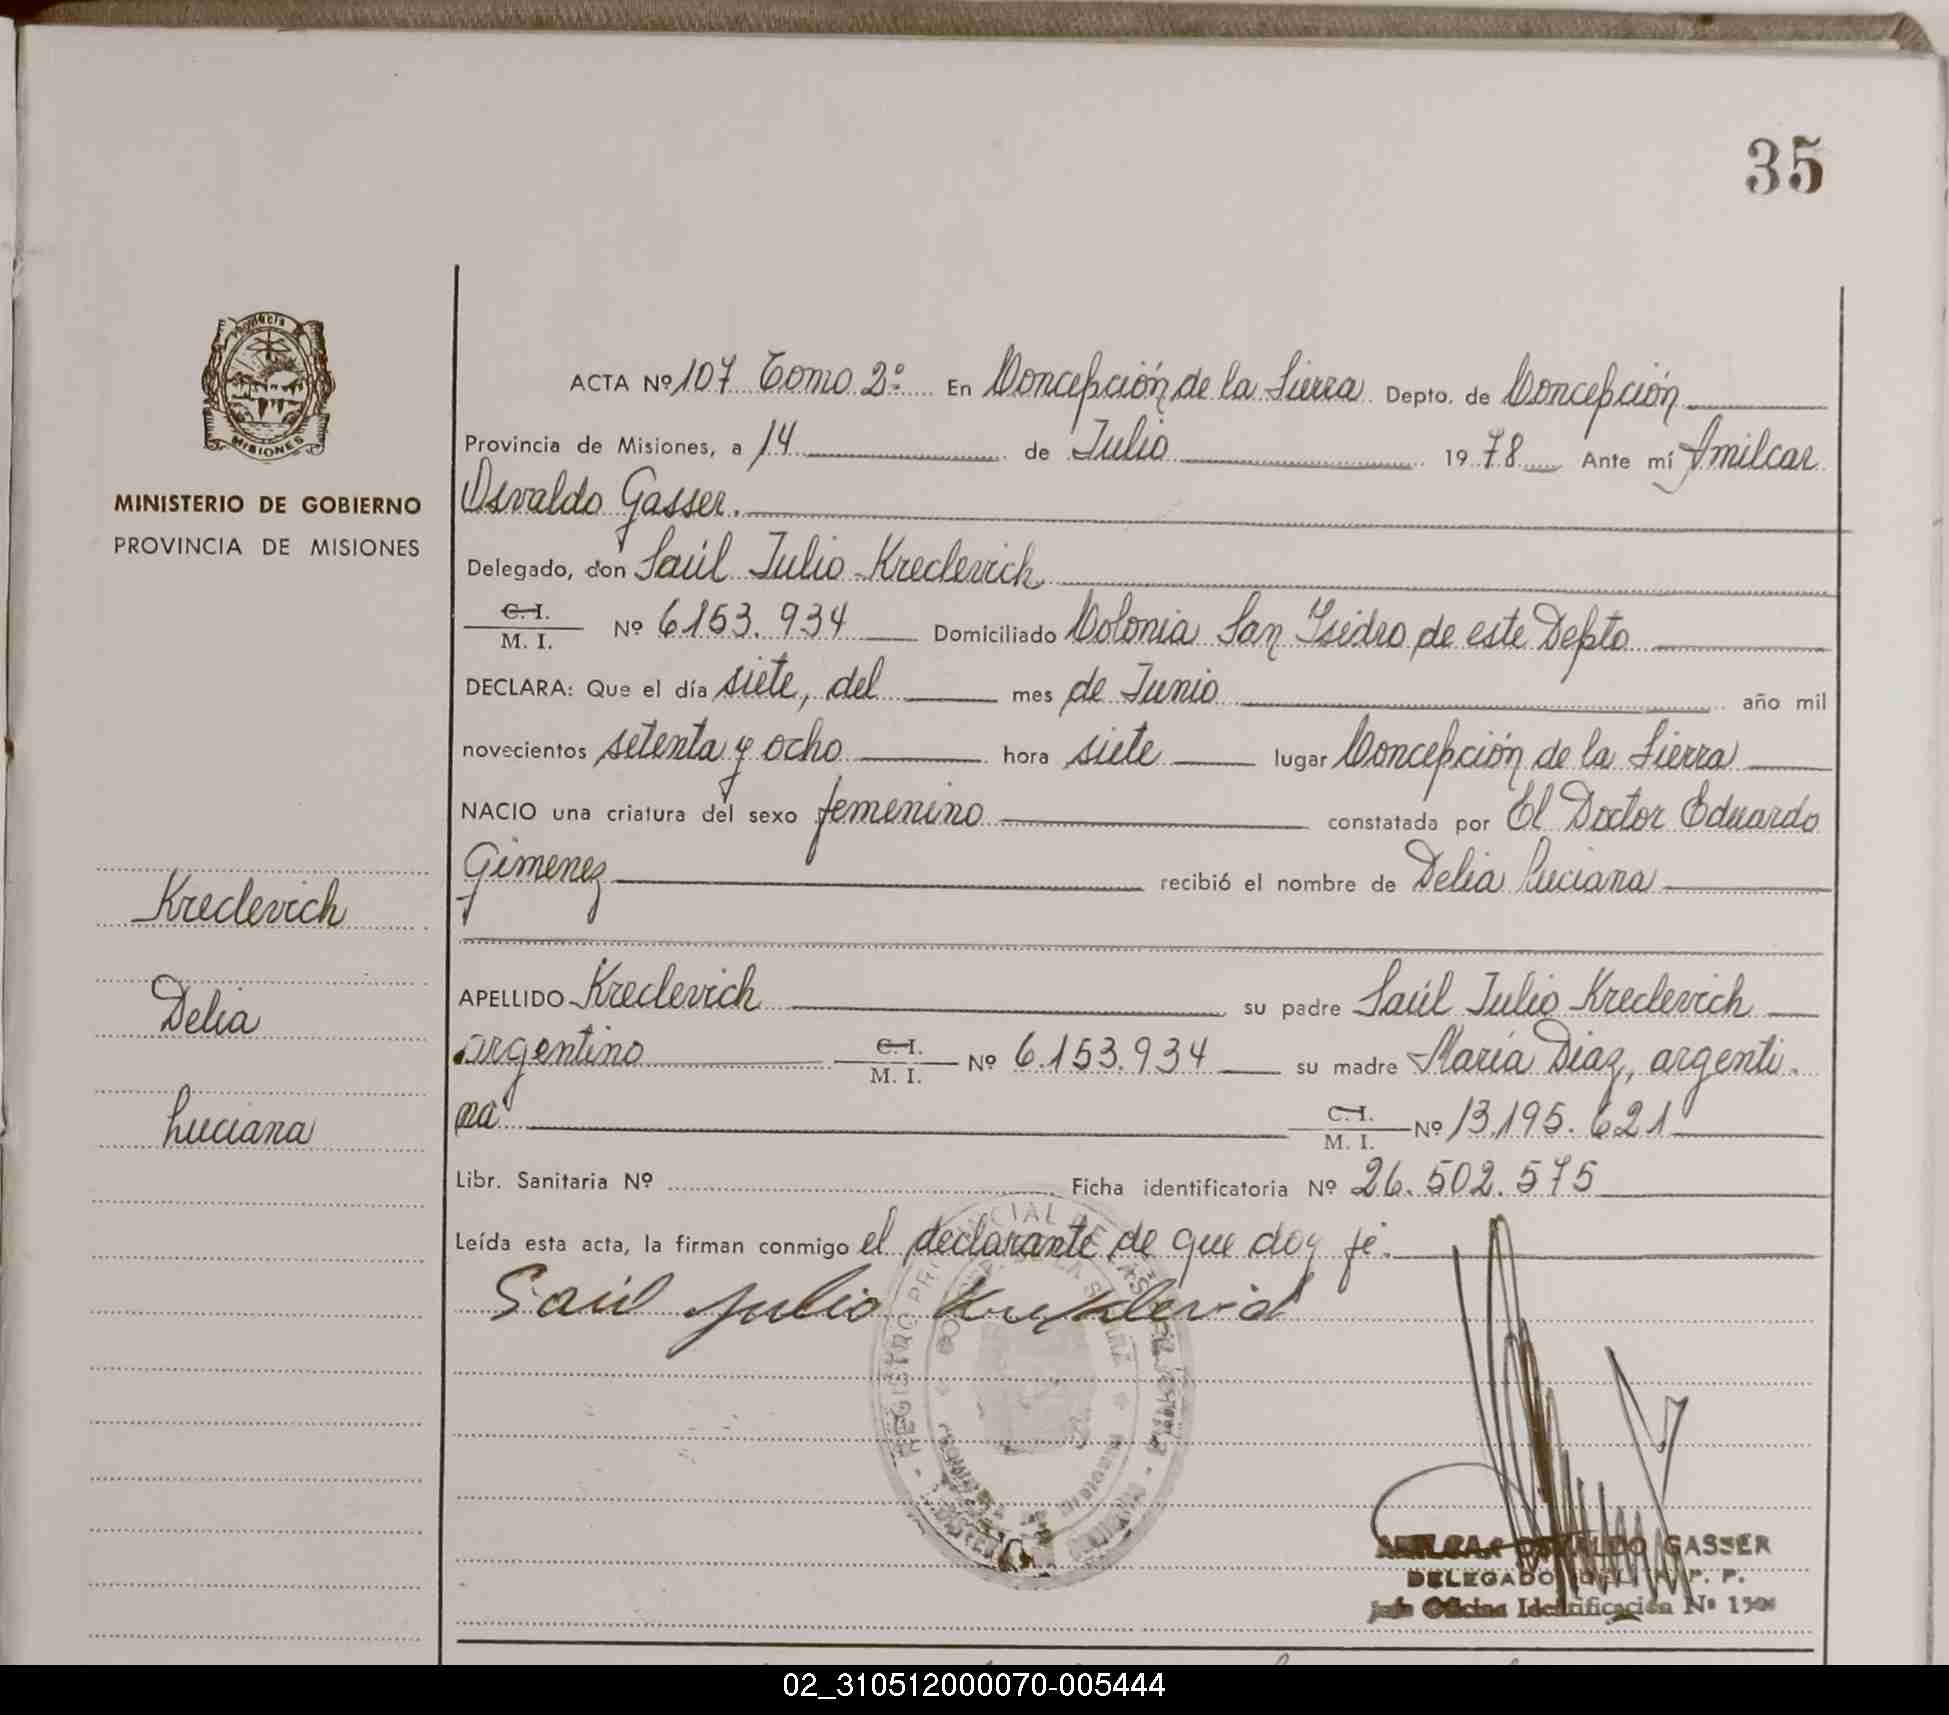 35
Provincia
MISIONES
MINISTERIO DE GOBIERNO
PROVINCIA DE MISIONES
Kreclevich
Delia
Luciana
ACTA Nº 107 Tomo 2º En Concepción de la Sierra Depto. de Concepción
Provincia de Misiones, a 14 de Julio 1978 Ante mí Amilcar
Osvaldo Gasser.
Delegado, don Saúl Julio Kreclevich
C. I.
M. I. Nº 6153.934 Domiciliado Colonia San Isidro de este Depto
DECLARA: Que el día siete, del mes de Junio año mil
novecientos setenta y ocho hora siete lugar Concepción de la Sierra
NACIO una criatura del sexo femenino constatada por El Doctor Eduardo
Gimenez recibió el nombre de Delia Luciana
APELLIDO Kreclevich su padre Saúl Julio Kreclevich
argentino C. I. M. I. Nº 6.153.934 su madre María Diaz, argenti-
na C. I. M. I. Nº 13.195.621
Libr. Sanitaria Nº Ficha identificatoria Nº 26.502.575
Leída esta acta, la firman conmigo el declarante de que doy fé.
Saúl Julio
REGISTRO PROVINCIAL DE LAS PERSONAS
AMILCAR OSVALDO GASSER
DELEGADO DEL R. P. P.
Jefe Oficina Identificación Nº
02_310512000070-005444